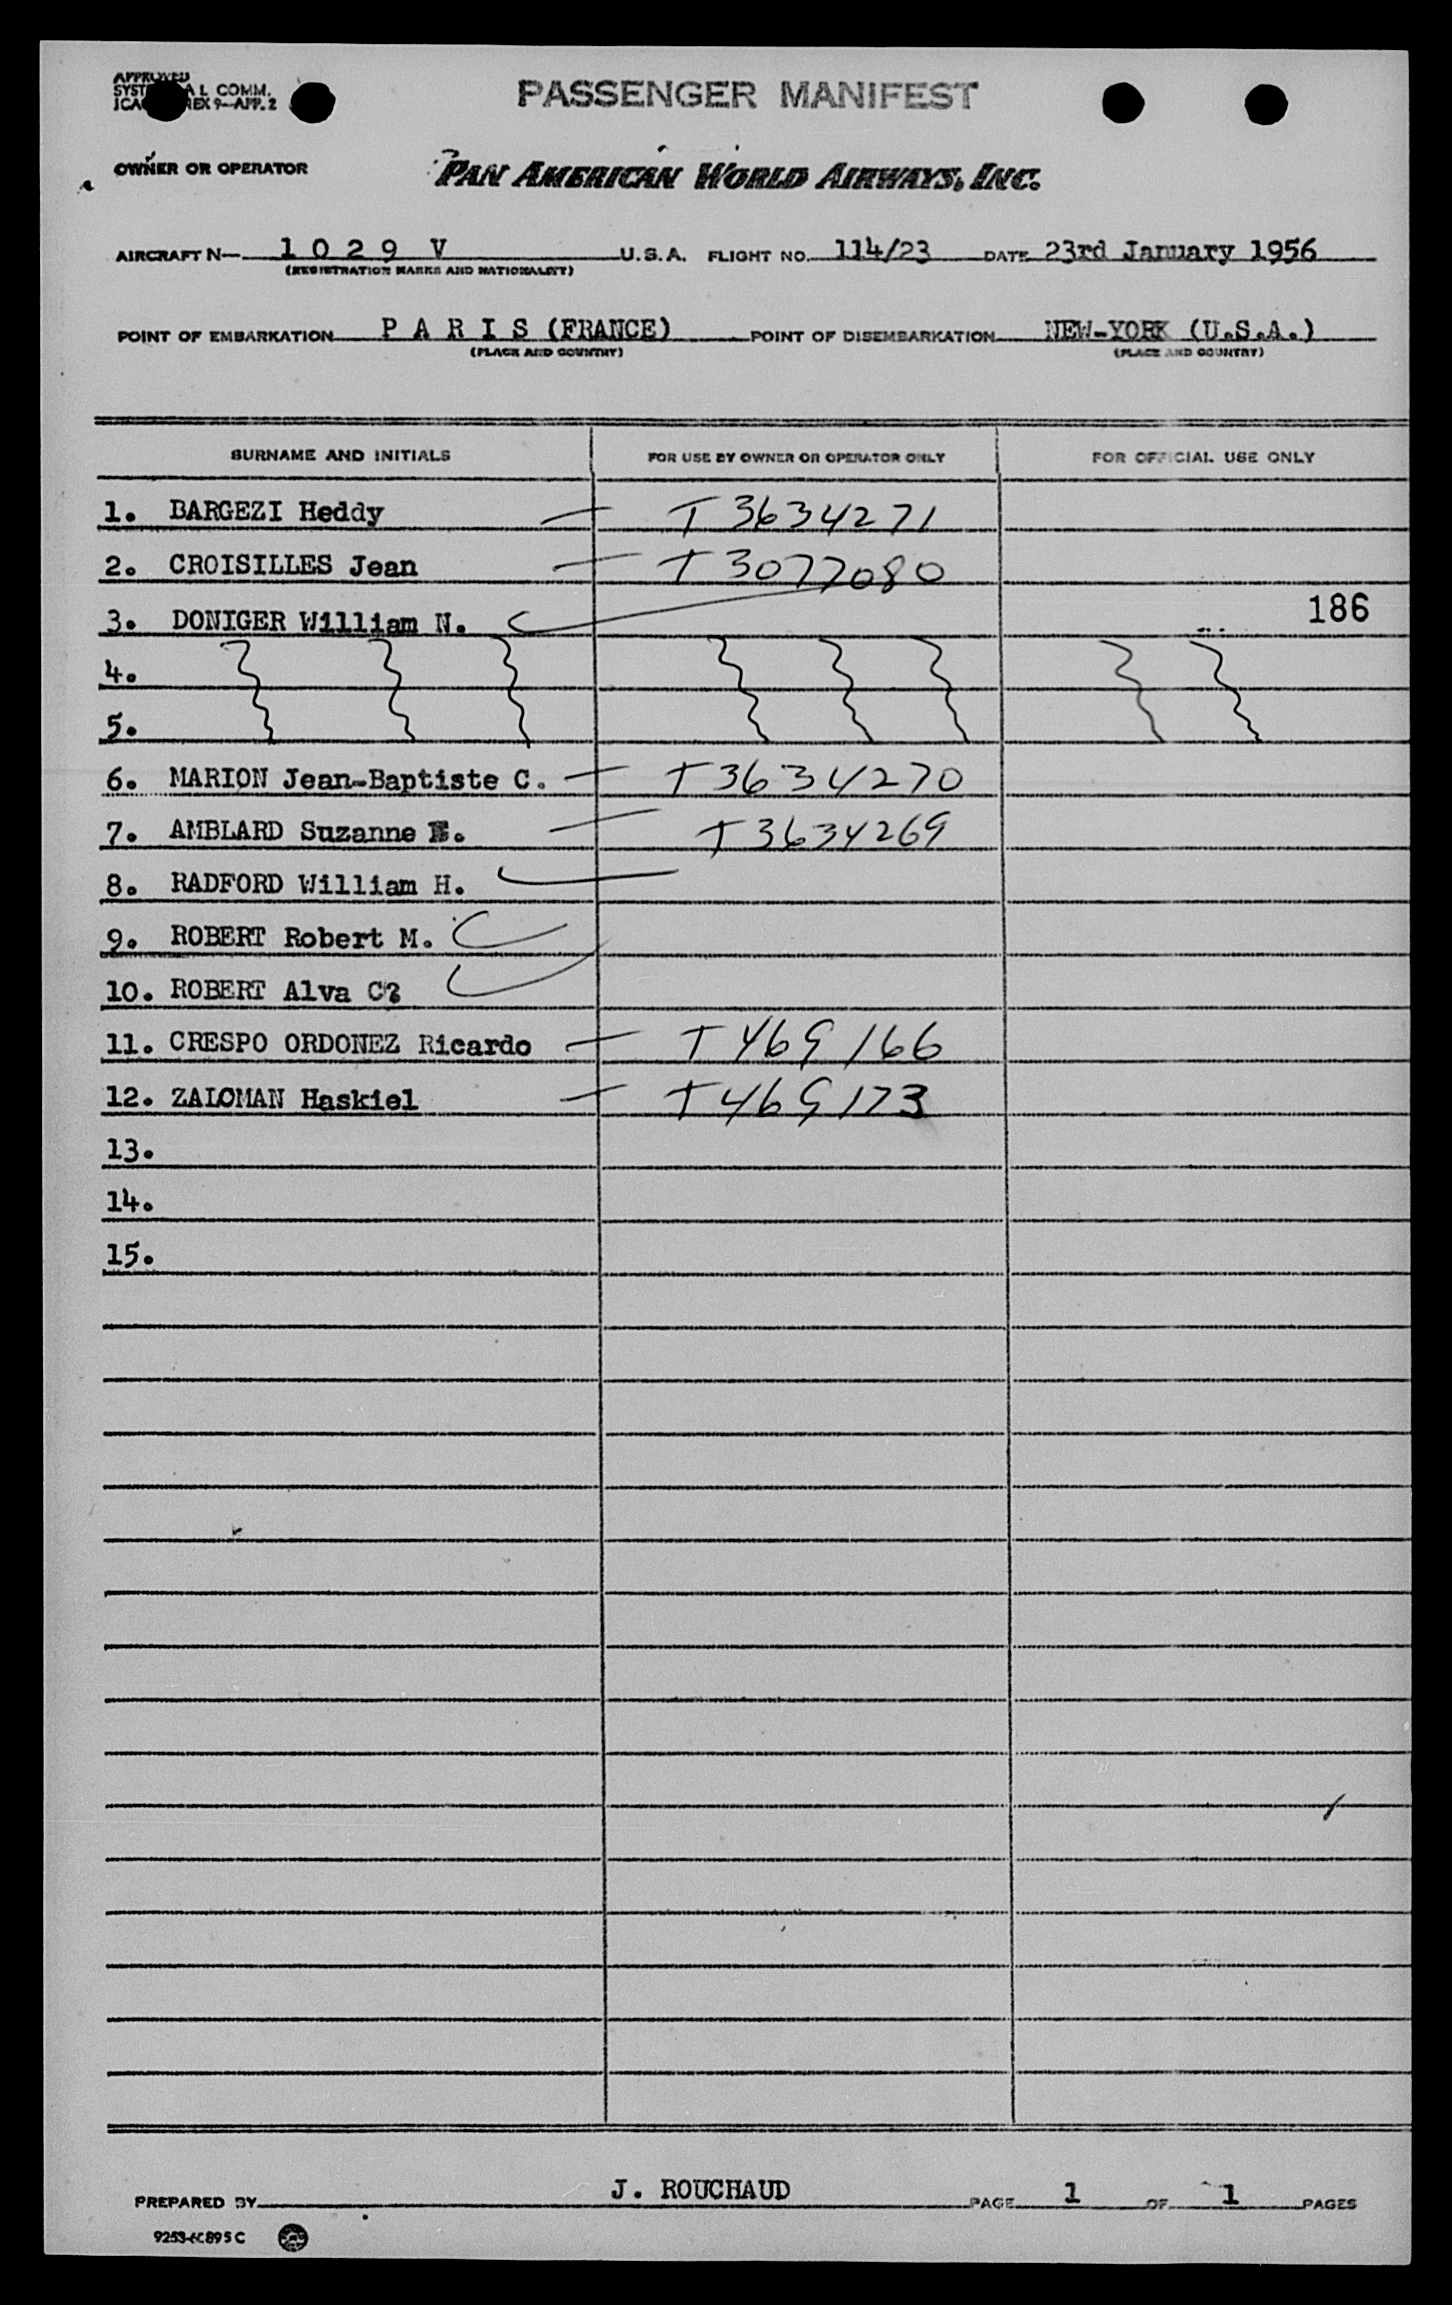 APPROVED
PASSENGER MANIFEST
OWNER OR OPERATOR PAN AMERICAN WORLD AIRWAYS, INC.
AIRCRAFT N— 1 0 2 9 V U.S.A. FLIGHT NO. 114/23 DATE 23rd January 1956
(REGISTRATION MARKS AND NATIONALITY)
POINT OF EMBARKATION P A R I S (FRANCE) POINT OF DISEMBARKATION NEW-YORK (U.S.A.)
(PLACE AND COUNTRY) (PLACE AND COUNTRY)
SURNAME AND INITIALS FOR USE BY OWNER OR OPERATOR ONLY FOR OFFICIAL USE ONLY
1. BARGEZI Heddy — T 3634271
2. CROISILLES Jean — T 3077080
3. DONIGER William N. 186
4.
5.
6. MARION Jean-Baptiste C. — T 3634270
7. AMBLARD Suzanne — T 3634269
8. RADFORD William H.
9. ROBERT Robert M.
10. ROBERT Alva C?
11. CRESPO ORDONEZ Ricardo — T 469166
12. ZALOMAN Haskiel — T 469173
13.
14.
15.
PREPARED BY J. ROUCHAUD PAGE 1 OF 1 PAGES